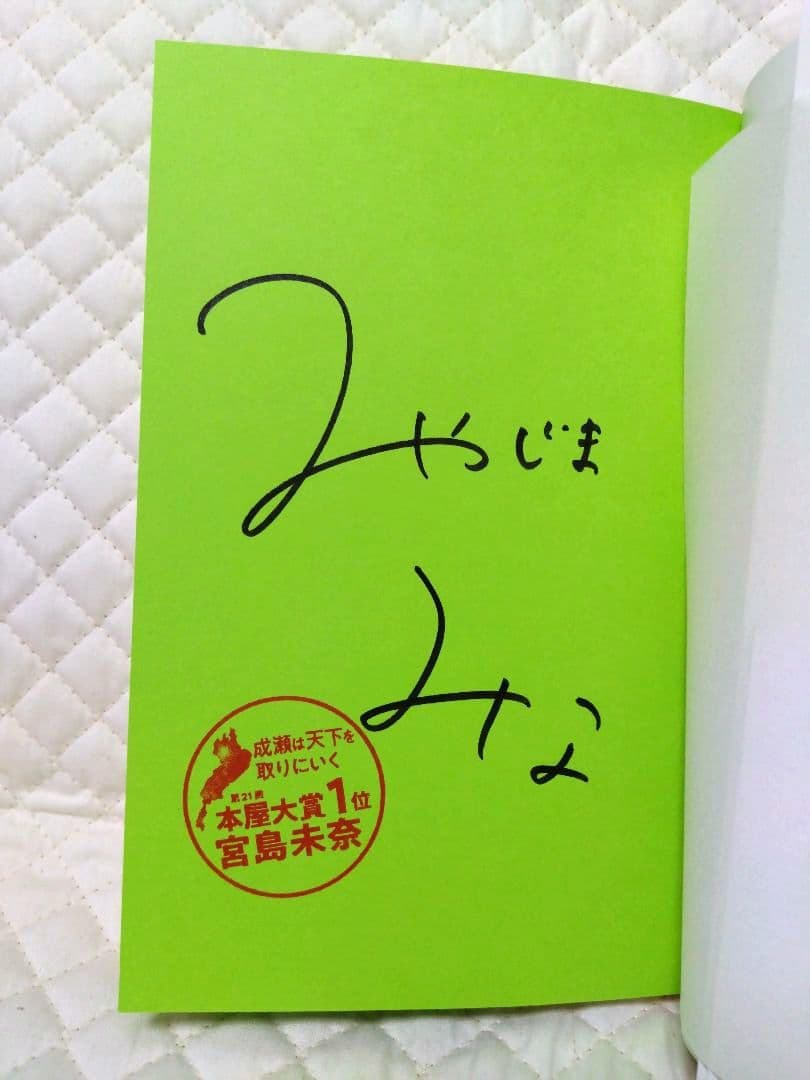 みやじま
みな
成瀬は天下を
取りにいく
第21回
本屋大賞1位
宮島未奈